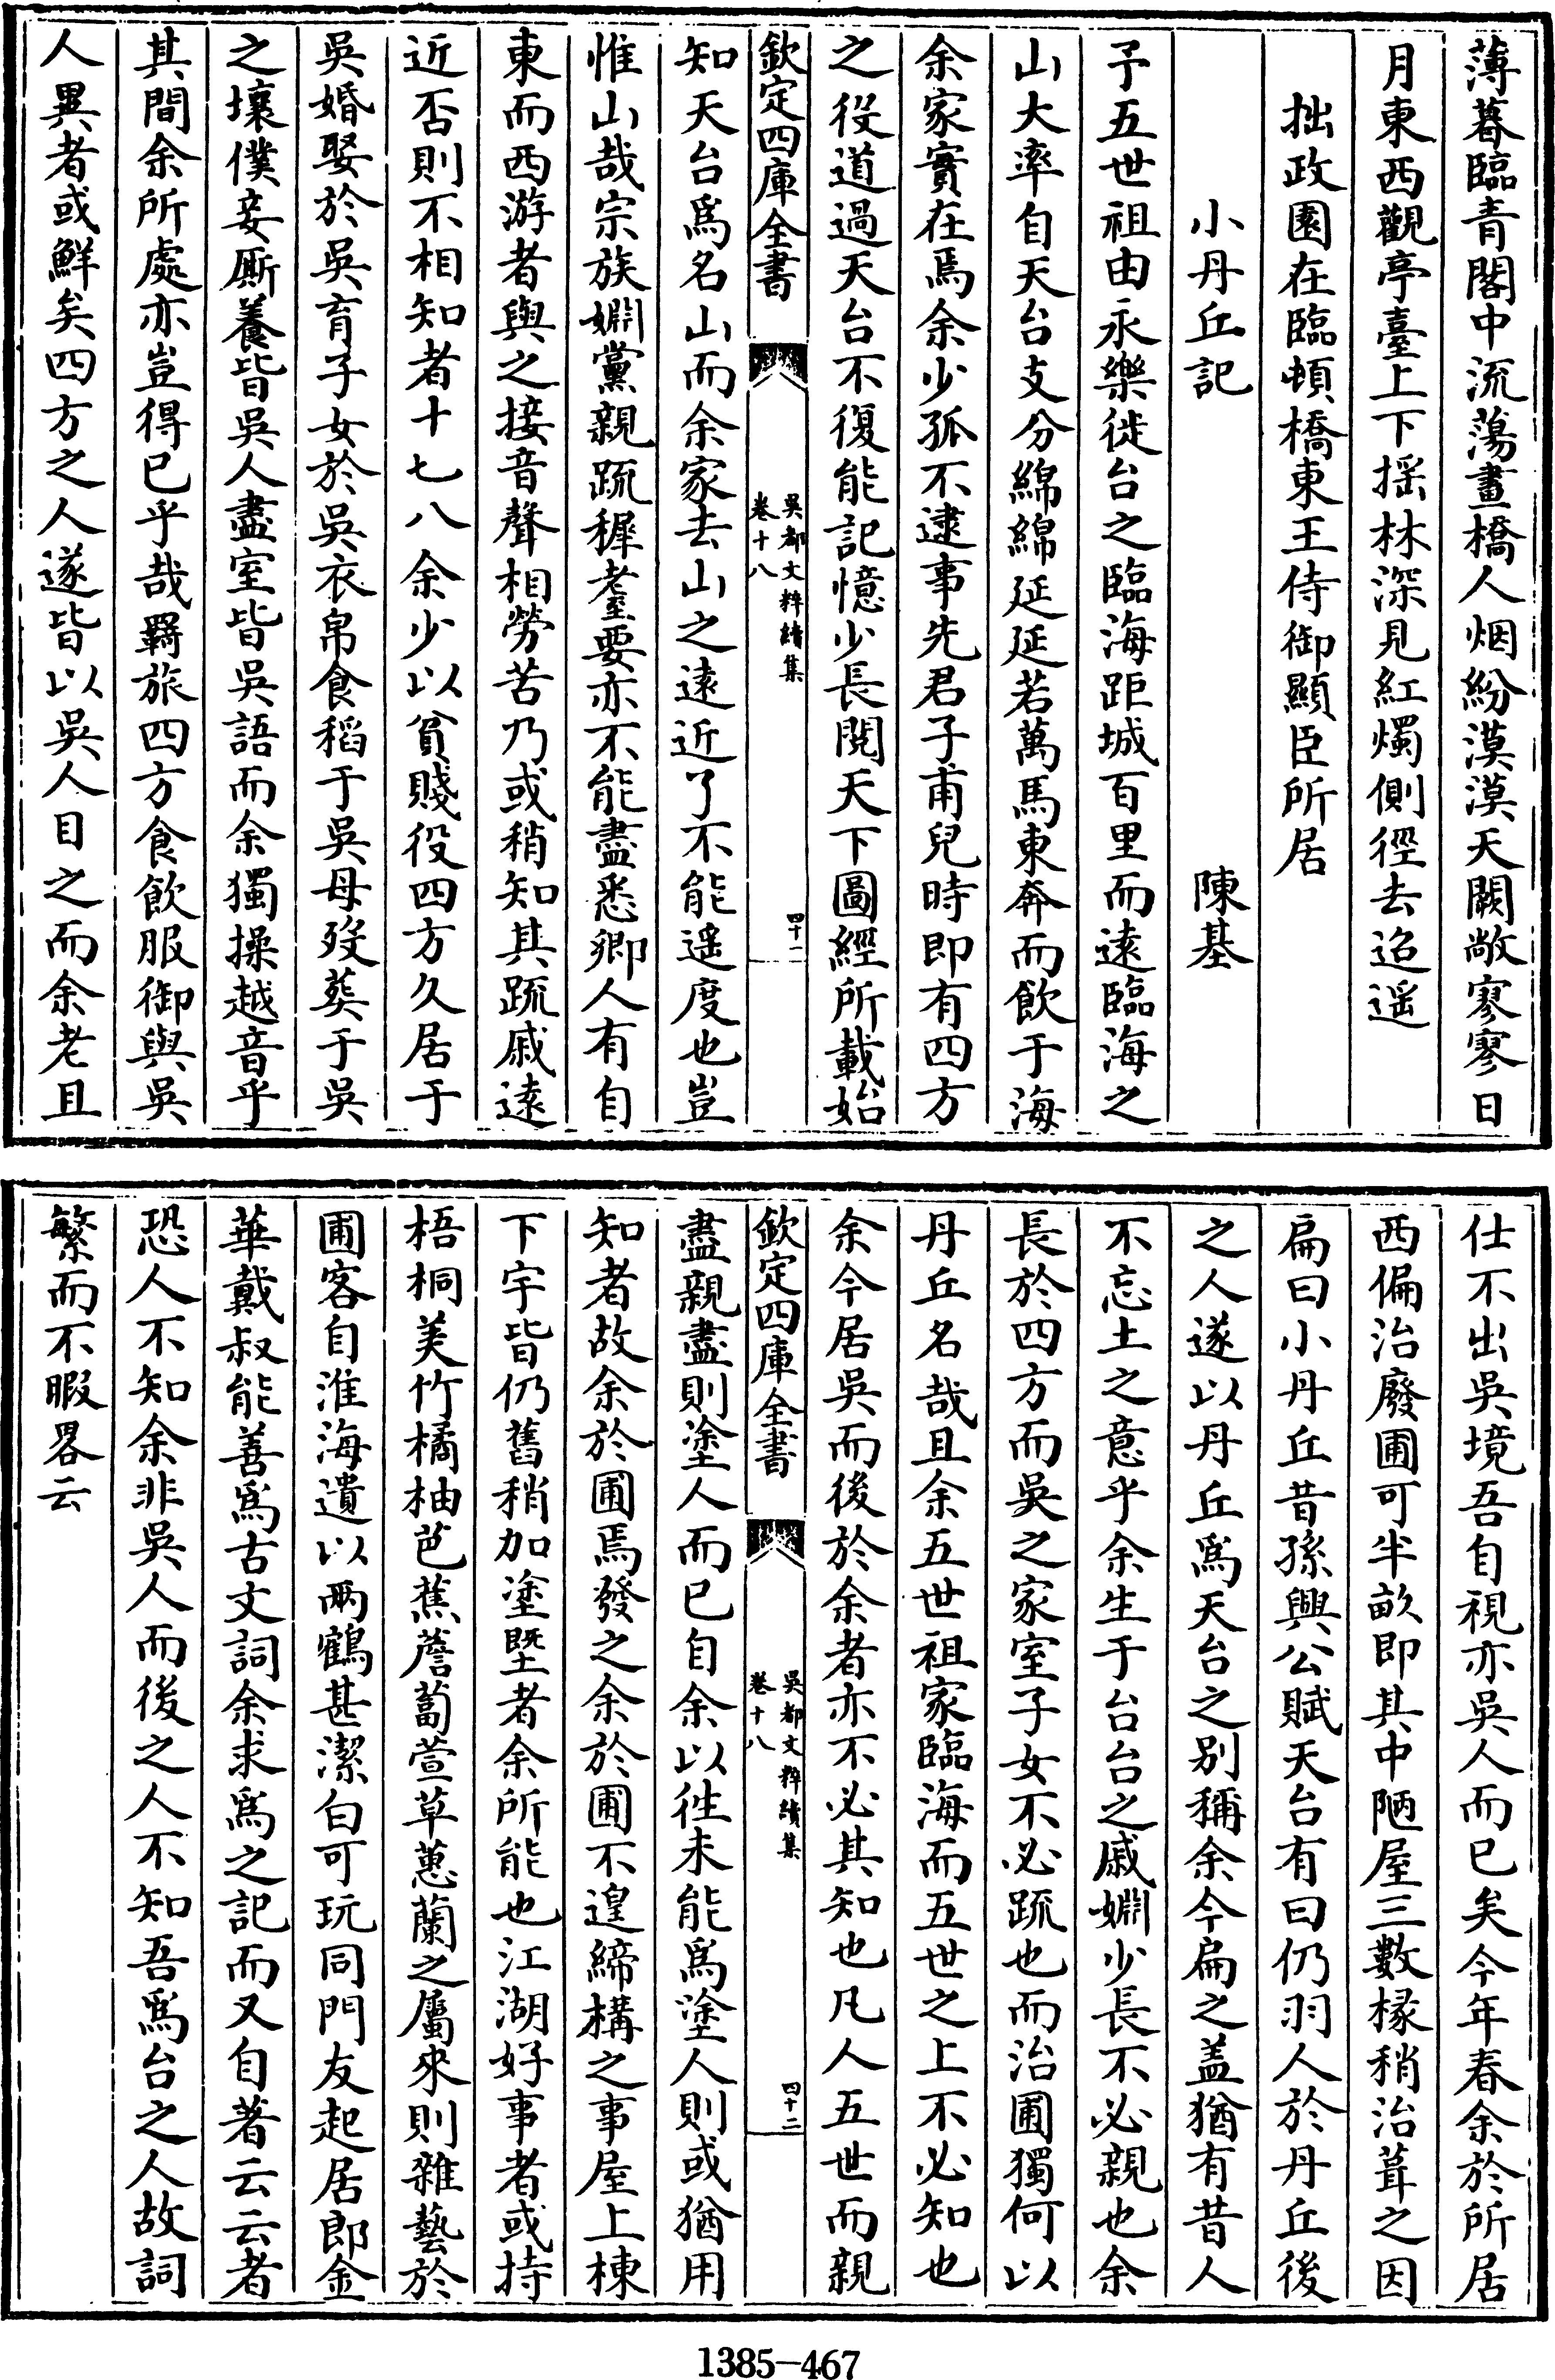 薄暮臨青閣中流蕩畫橋人烟紛漠漠天闕敞寥寥日
月東西觀亭臺上下揺林深見紅燭側徑去迢遥
拙政園在臨頓橋東王侍御顯臣所居
小丹丘記　　陳基
予五世祖由永樂徙台之臨海距城百里而逺臨海之
山大率自天台支分綿綿延延若萬馬東奔而飲于海
余家實在焉余少孤不逮事先君子甫兒時即有四方
之役道過天台不復能記憶少長閱天下圖經所載始
欽定四庫全書
吳都文粹續集
卷十八
四十一
知天台爲名山而余家去山之逺近了不能遥度也豈
惟山哉宗族婣黨親疏穉耋要亦不能盡悉鄉人有自
東而西游者與之接音聲相勞苦乃或稍知其疏戚逺
近否則不相知者十七八余少以貧賤役四方久居于
吳婚娶於吳育子女於吳衣帛食稻于吳母歿葬于吳
之壤僕妾厮養皆吳人盡室皆吳語而余獨操越音乎
其間余所處亦豈得已乎哉羇旅四方食飲服御與吳
人異者或鮮矣四方之人遂皆以吳人目之而余老且
仕不出吳境吾自視亦吳人而已矣今年春余於所居
西偏治廢圃可半畝即其中陋屋三數椽稍治葺之因
扁曰小丹丘昔孫興公賦天台有曰仍羽人於丹丘後
之人遂以丹丘爲天台之别稱余今扁之盖猶有昔人
不忘土之意乎余生于台台之戚婣少長不必親也余
長於四方而吳之家室子女不必疏也而治圃獨何以
丹丘名哉且余五世祖家臨海而五世之上不必知也
余今居吳而後於余者亦不必其知也凡人五世而親
欽定四庫全書
吳都文粹續集
卷十八
四十二
盡親盡則塗人而已自余以徃未能爲塗人則或猶用
知者故余於圃焉發之余於圃不遑締構之事屋上棟
下宇皆仍舊稍加塗塈者余所能也江湖好事者或持
梧桐美竹橘柚芭蕉薝蔔萱草蕙蘭之屬來則雜藝於
圃客自淮海遺以兩鶴甚潔白可玩同門友起居郎金
華戴叔能善爲古文詞余求爲之記而又自著云云者
恐人不知余非吳人而後之人不知吾爲台之人故詞
繁而不暇畧云
1385—467